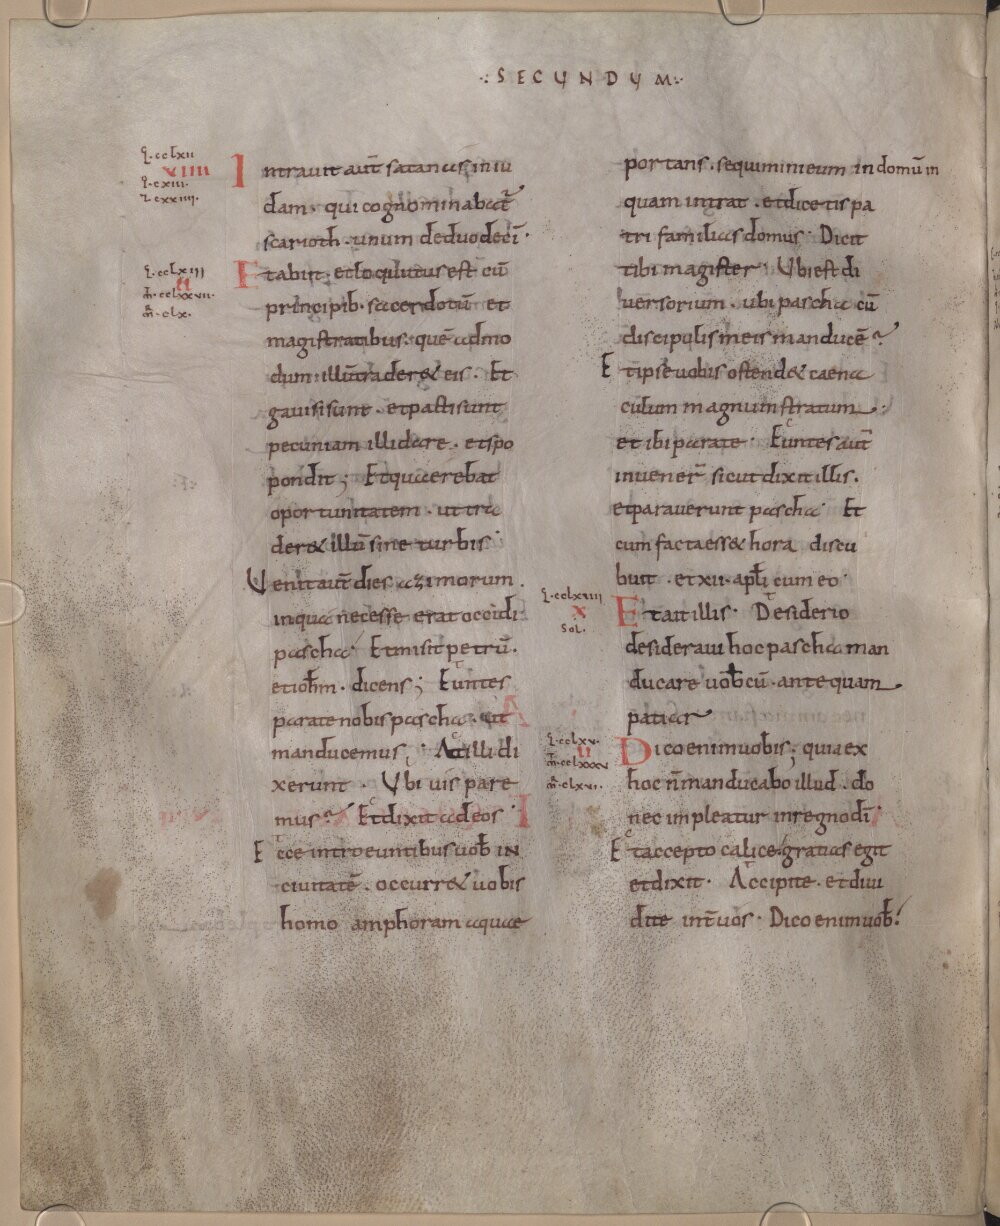 ·:SECUNDUM:·
L·cclxii
viiii
L·cxiii·
I·cxxiiii·
Intrauit aut̄ satanas iniu
dam· qui cognominabat̄
scarioth· unum deduodeci·
L·cclxiii
ii
m̄·cclxxvii·
m̄·clx·
Etabiit· etlocututusest cū
principib· sacerdotū et
magistratibus: quē admo
dum illūtraderet eis· Et
gauisisunt· etpactisunt
pecuniam illidare· etspo
pondit; Etquaerebat
oportunitatem· uttra
deret illū sine turbis·
Uenitaut̄ dies azimorum·
inqua necesse erat occidi
pascha· Etmisit petrū·
etioh̄m· dicens; Euntes
paratenobispascha· ut
manducemus; Atilli di
xerunt· Ubi uis pare
mus? Etdixit adeos·
Ecce introeuntibusuob̄ in
ciuitatē· occurret uobis
homo amphoram aquae
portans· sequiminieum in domū in
quam intrat· etdicetis pa
tri familias domus· Dicit
tibi magister· Ubiest di
uersorium· ubi pascha cū
discipulis meis manducē?
Et ipse uobis ostendet caena
culum magnum stratum·
et ibi parate· Euntes aut̄
inuener̄ sicut dixit illis·
etparauerunt pascha· Et
cum facta esset hora discu
buit· et xii· apl̄i cum eo·
L·cclxiiii
x
Sol·
Et ait illis· Desiderio
desideraui hoc pascha man
ducare uob̄ cū· antequam
patiar
L·cclxv·
ii
m̄·cclxxxv
m̄·clxvi·
Dico enim uobis; quia ex
hoc n̄ manducabo illud· do
nec impleatur inregno dī·
Et accepto calice gratias egit
etdixit· Accipite· et diui
dite int̄ uos· Dico enim uob̄!